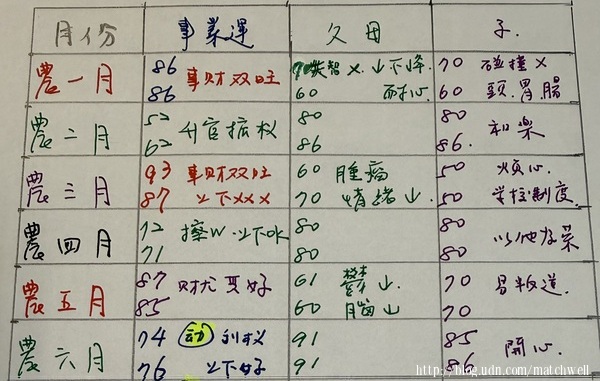 月份 事業運 父母 子.
農一月 86 事財双旺 70 失智 x. 山下降 70 碰撞 x
86 60 耐心. 60 頭.胃腸
農二月 52 升官掋权 80 80 和樂
62 86 86.
農三月 93 事财双旺 60 腫瘤 50 煩心.
87 以下xxx 70 情緒山. 50 学校制度.
農四月 72 以下 80 80 以他为荣
71 80 80
農五月 87 财尤更好 61 鬱山. 70 易叛道.
85 60 腦山 70
農六月 74 动 91 85 開心.
76 以下好 91 86
http://blog.udn.com/matchwell